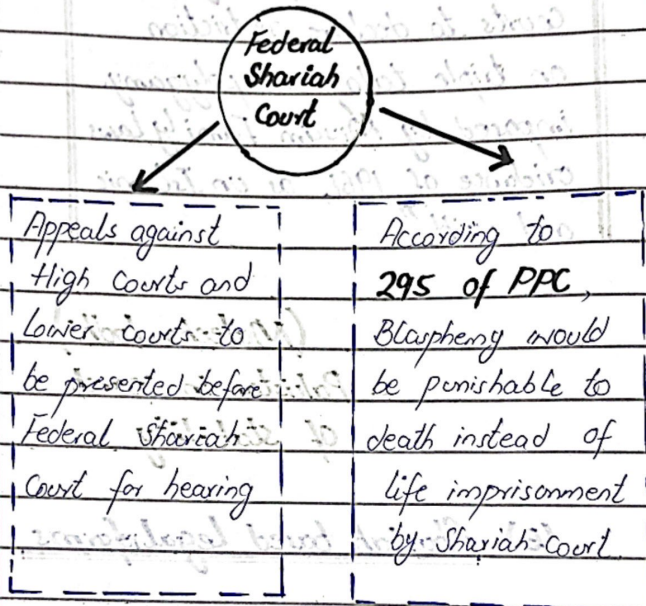 Federal
Shariah
Court
Appeals against
High Courts and
Lower courts to
be presented before
Federal Shariah
Court for hearing
According to
295 of PPC,
Blasphemy would
be punishable to
death instead of
life imprisonment
by Shariah Court.